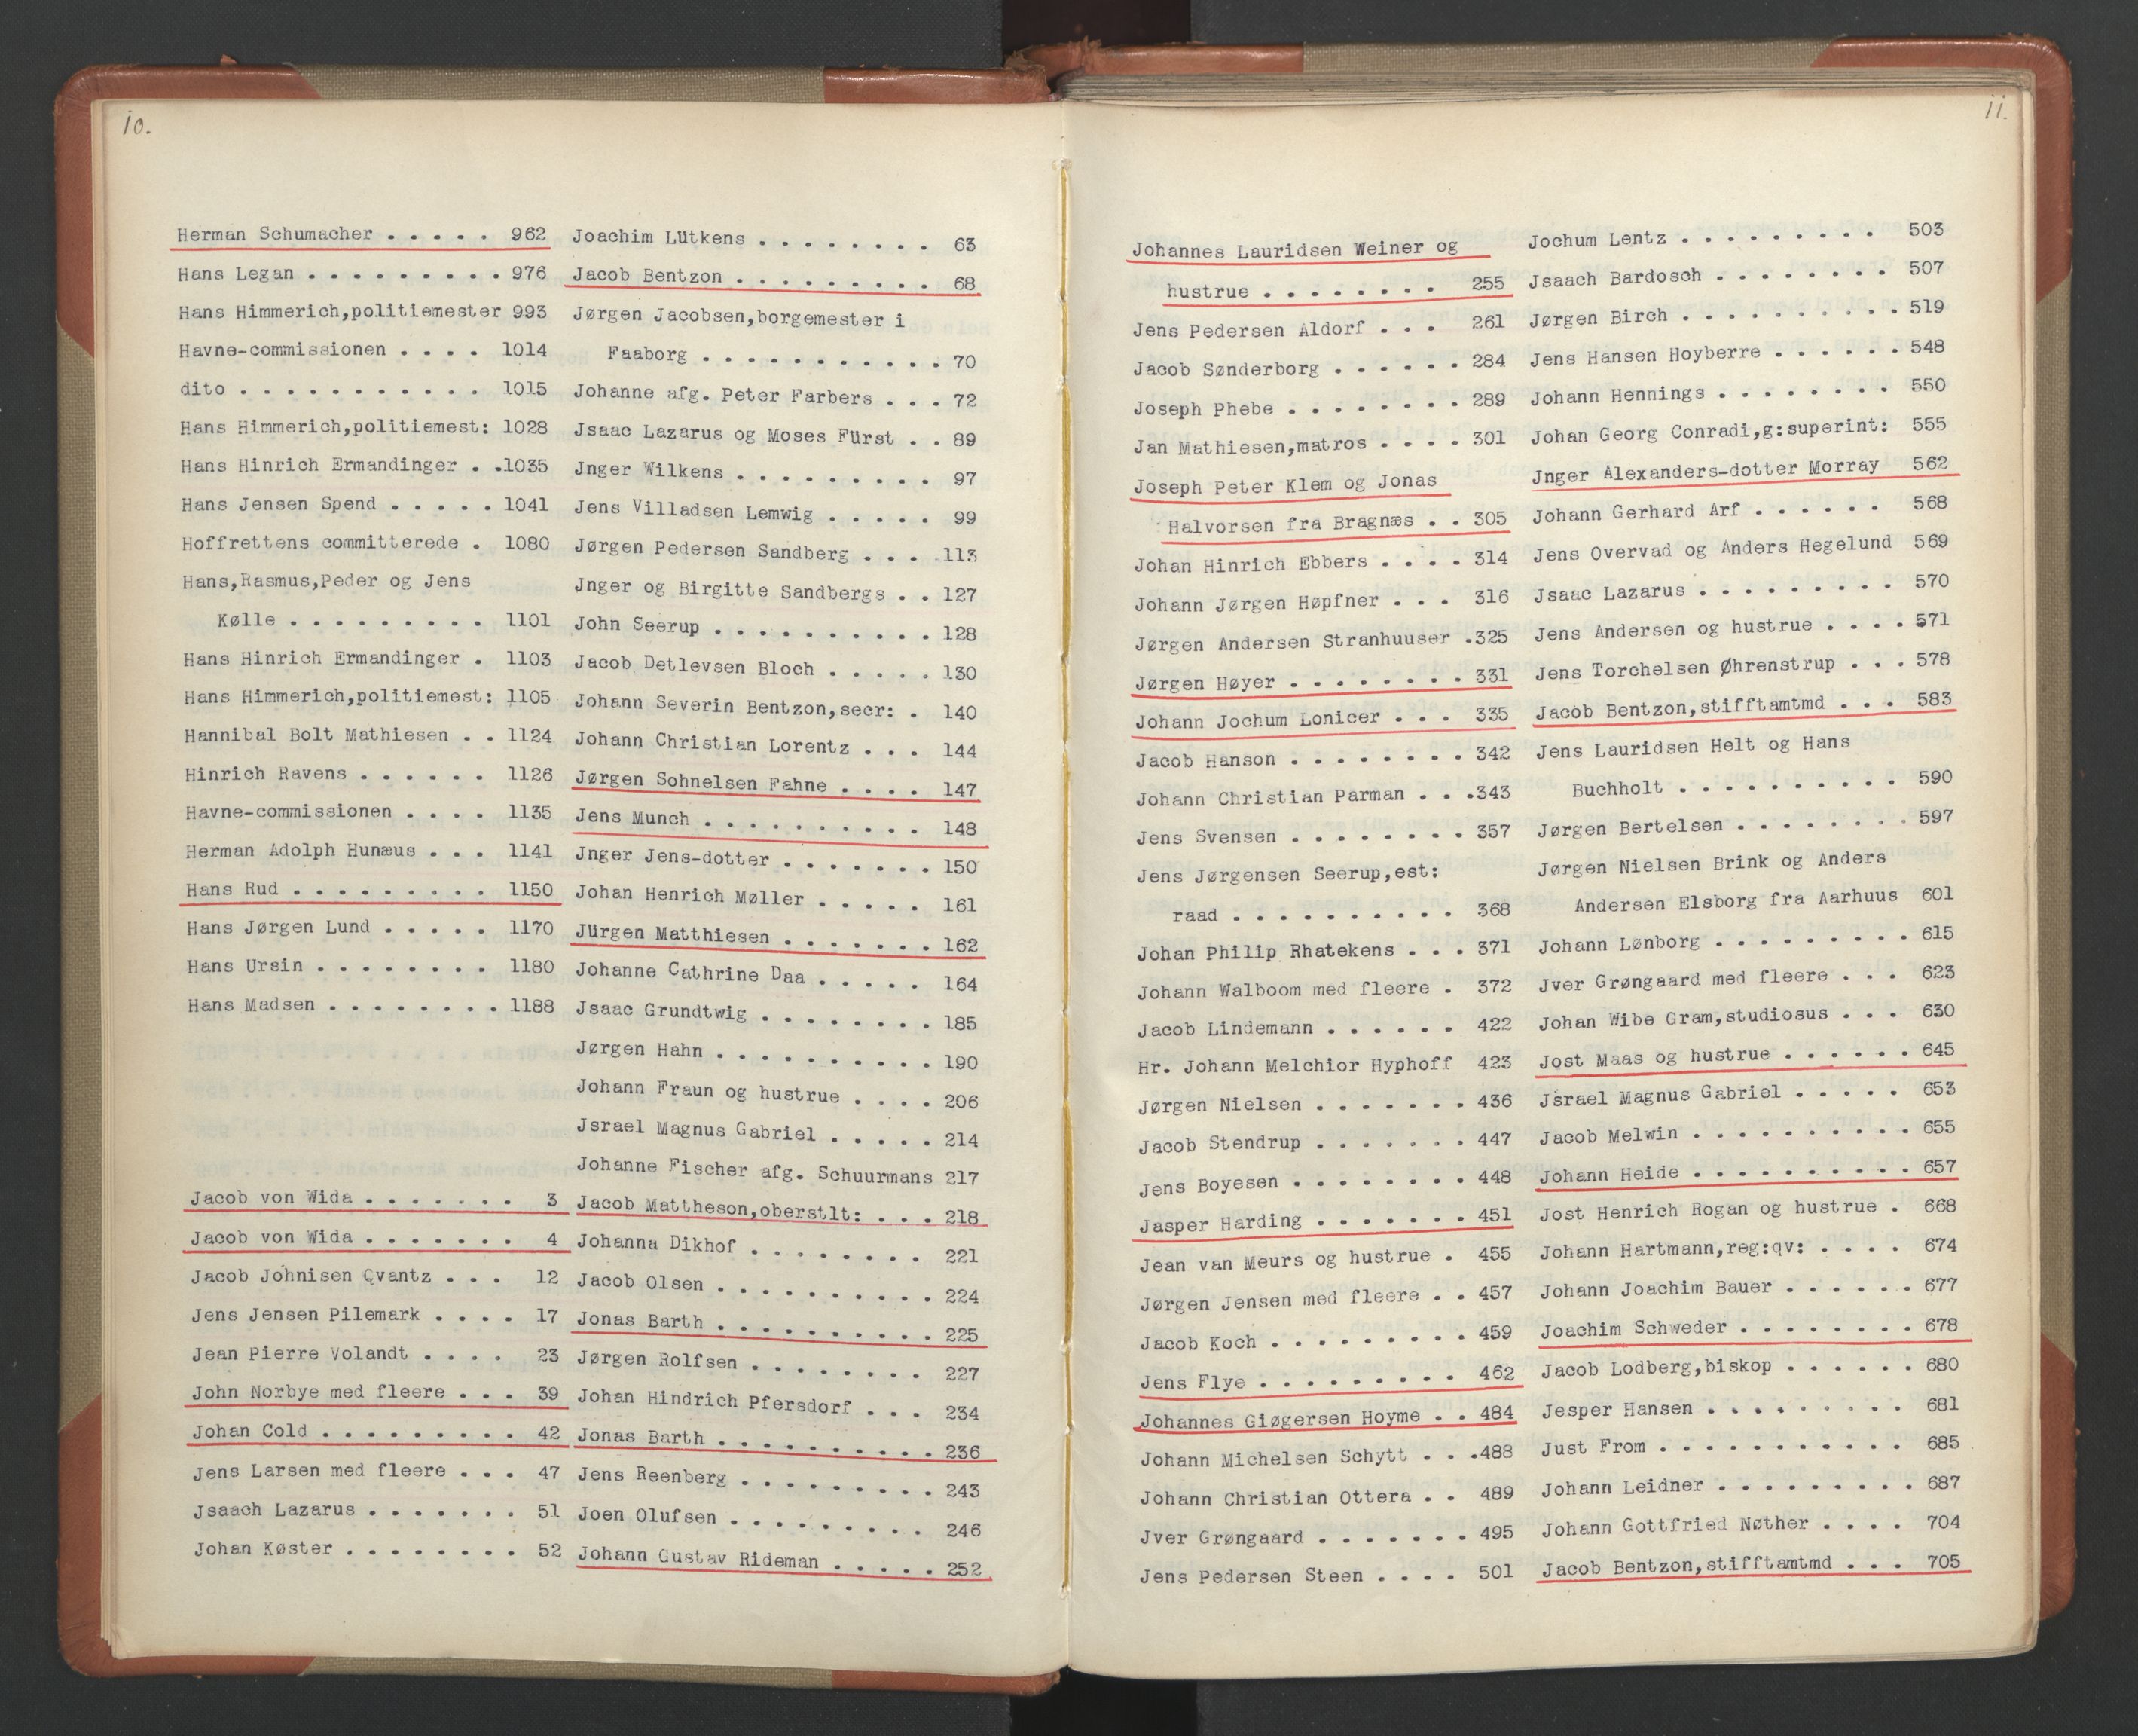 10.
Herman Schumacher . . . . . 962
Hans Legan . . . . . . . . . 976
Hans Himmerich,politiemester 993
Havne-commissionen . . . . 1014
dito . . . . . . . . . . . 1015
Hans Himmerich,politiemest: 1028
Hans Hinrich Ermandinger . .1035
Hans Jensen Spend . . . . . 1041
Hoffrettens committerede . 1080
Hans,Rasmus,Peder og Jens
Kølle . . . . . . . . . 1101
Hans Hinrich Ermandinger . 1103
Hans Himmerich,politiemest: 1105
Hannibal Bolt Mathiesen . . 1124
Hinrich Ravens . . . . . . 1126
Havne-commissionen . . . . 1135
Herman Adolph Hunæus . . . 1141
Hans Rud . . . . . . . . . 1150
Hans Jørgen Lund . . . . . 1170
Hans Ursin . . . . . . . . 1180
Hans Madsen . . . . . . . . 1188
Jacob von Wida . . . . . . . 3
Jacob von Wida . . . . . . . 4
Jacob Johnisen Qvantz . . . 12
Jens Jensen Pilemark . . . . 17
Jean Pierre Volandt . . . . 23
John Norbye med fleere . . . 39
Johan Cold . . . . . . . . . 42
Jens Larsen med fleere . . . 47
Jsaach Lazarus . . . . . . . 51
Johan Køster . . . . . . . . 52
Joachim Lütkens . . . . . . . . 63
Jacob Bentzon . . . . . . . . . 68
Jørgen Jacobsen,borgemester i
Faaborg . . . . . . . . . . . 70
Johanne afg. Peter Farbers . . . 72
Jsaac Lazarus og Moses Fürst . . 89
Jnger Wilkens . . . . . . . . . 97
Jens Villadsen Lemwig . . . . . 99
Jørgen Pedersen Sandberg . . . .113
Jnger og Birgitte Sandbergs . . 127
John Seerup . . . . . . . . . . 128
Jacob Detlevsen Bloch . . . . . 130
Johann Severin Bentzon,secr: . 140
Johann Christian Lorentz . . . 144
Jørgen Sohnelsen Fahne . . . . 147
Jens Munch . . . . . . . . . . 148
Jnger Jens-dotter . . . . . . . 150
Johan Henrich Møller . . . . . 161
Jürgen Matthiesen . . . . . . . 162
Johanne Cathrine Daa . . . . . 164
Jsaac Grundtwig . . . . . . . . 185
Jørgen Hahn . . . . . . . . . . 190
Johann Fraun og hustrue . . . . 206
Jsrael Magnus Gabriel . . . . . 214
Johanne Fischer afg. Schuurmans 217
Jacob Mattheson,oberstlt: . . . 218
Johanna Dikhof . . . . . . . . 221
Jacob Olsen . . . . . . . . . . 224
Jonas Barth . . . . . . . . . . 225
Jørgen Rolfsen . . . . . . . . 227
Johan Hindrich Pfersdorf . . . 234
Jonas Barth . . . . . . . . . . 236
Jens Reenberg . . . . . . . . . 243
Joen Olufsen . . . . . . . . . 246
Johann Gustav Rideman . . . . . 252
11.
Johannes Lauridsen Weiner og
hustrue . . . . . . . . 255
Jens Pedersen Aldorf . . . 261
Jacob Sønderborg . . . . . . 284
Joseph Phebe . . . . . . . . 289
Jan Mathiesen,matros . . . . 301
Joseph Peter Klem og Jonas
Halvorsen fra Bragnæs . . 305
Johan Hinrich Ebbers . . . . 314
Johann Jørgen Høpfner . . . 316
Jørgen Andersen Stranhuuser .325
Jørgen Høyer . . . . . . . . 331
Johann Jochum Lonicer . . . 335
Jacob Hanson . . . . . . . . 342
Johann Christian Parman . . .343
Jens Svensen . . . . . . . . 357
Jens Jørgensen Seerup,est:
raad . . . . . . . . . . 368
Johan Philip Rhatekens . . . 371
Johann Walboom med fleere . 372
Jacob Lindemann . . . . . . 422
Hr. Johann Melchior Hyphoff 423
Jørgen Nielsen . . . . . . . 436
Jacob Stendrup . . . . . . . 447
Jens Boyesen . . . . . . . . 448
Jasper Harding . . . . . . . 451
Jean van Meurs og hustrue . 455
Jørgen Jensen med fleere . . 457
Jacob Koch . . . . . . . . . 459
Jens Flye . . . . . . . . . 462
Johannes Giøgersen Hoyme . . 484
Johann Michelsen Schytt . . .488
Johann Christian Ottera . . 489
Jver Grøngaard . . . . . . . 495
Jens Pedersen Steen . . . . 501
Jochum Lentz . . . . . . . . . 503
Jsaach Bardosch . . . . . . . . 507
Jørgen Birch . . . . . . . . . . 519
Jens Hansen Hoyberre . . . . . . 548
Johann Hennings . . . . . . . . 550
Johan Georg Conradi,g:superint: 555
Jnger Alexanders-dotter Morray 562
Johann Gerhard Arf . . . . . . 568
Jens Overvad og Anders Hegelund 569
Jsaac Lazarus . . . . . . . . . 570
Jens Andersen og hustrue . . . . 571
Jens Torchelsen Øhrenstrup . . . 578
Jacob Bentzon,stifftamtmd . . . 583
Jens Lauridsen Helt og Hans
Buchholt . . . . . . . . . . 590
Jørgen Bertelsen . . . . . . . . 597
Jørgen Nielsen Brink og Anders
Andersen Elsborg fra Aarhuus 601
Johann Lønborg . . . . . . . . . 615
Jver Grøngaard med fleere . . . 623
Johan Wibe Gram,studiosus . . . 630
Jost Maas og hustrue . . . . . . 645
Jsrael Magnus Gabriel . . . . . 653
Jacob Melwin . . . . . . . . . . 655
Johann Heide . . . . . . . . . . 657
Jost Henrich Rogan og hustrue . 668
Johann Hartmann,reg:qv: . . . . 674
Johann Joachim Bauer . . . . . . 677
Joachim Schweder . . . . . . . . 678
Jacob Lodberg,biskop . . . . . . 680
Jesper Hansen . . . . . . . . . 681
Just From . . . . . . . . . . . 685
Johann Leidner . . . . . . . . . 687
Johann Gottfried Nøther . . . . 704
Jacob Bentzon,stifftamtmd . . . 705